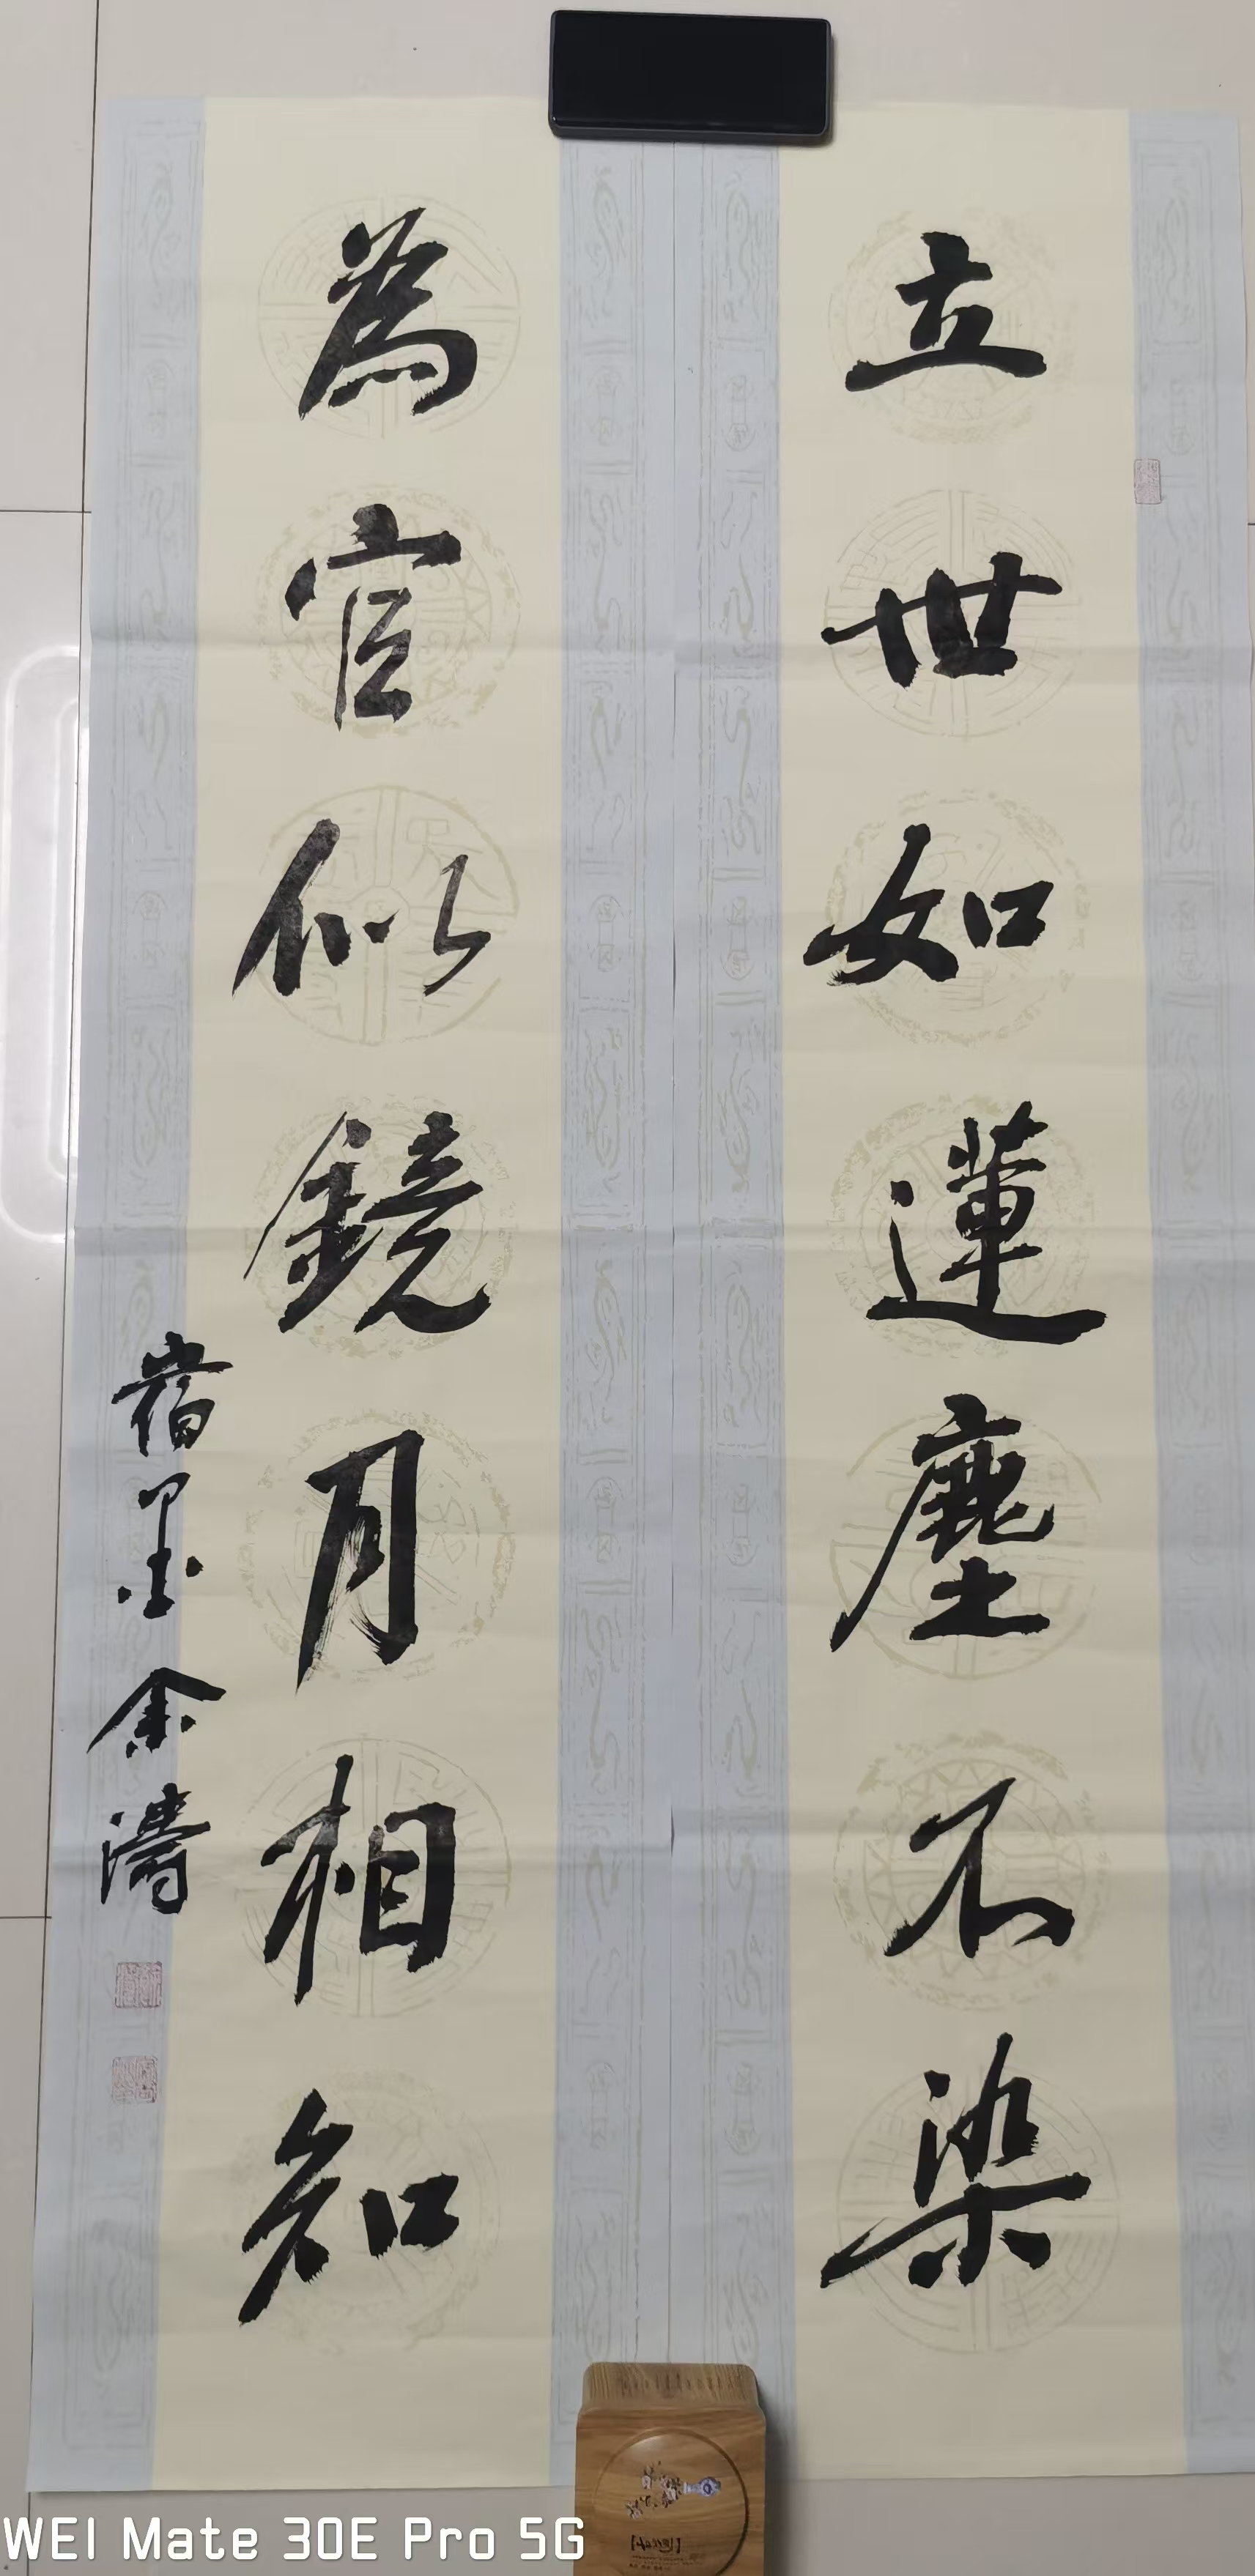 立世如蓮塵不染
為官似鏡月相知
宿墨余濤
WEI Mate 30E Pro 5G